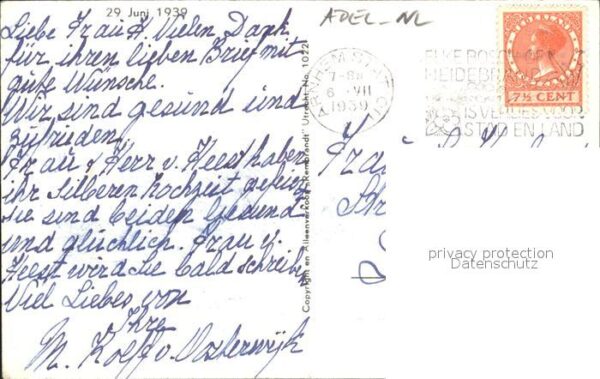 29 Juni 1939
Liebe Frau H. Vielen Dank
für ihren lieben Brief mit
gute Wünsche.
Wir sind gesund und
zufrieden.
Frau & Herr v. Heest haben
ihr Silberen hochzeit gefeiert
sie sind beiden Gesund
und glüchlich. Frau v.
Heest wird Sie bald schreiben
Viel Liebes von
Ihre
M. Kolff v. Oosterwijk
Copyright en Alleenverkoop "Rembrandt" Utrecht No. 1022
ADEL-NL
ARNHEM STATION
7-8
6 VII
1939
ELKE BOSCH- OF
HEIDEBRAND
IS VERLIES VOOR
STAD EN LAND
NEDERLAND
7½ CENT
Frau
Str
privacy protection
Datenschutz